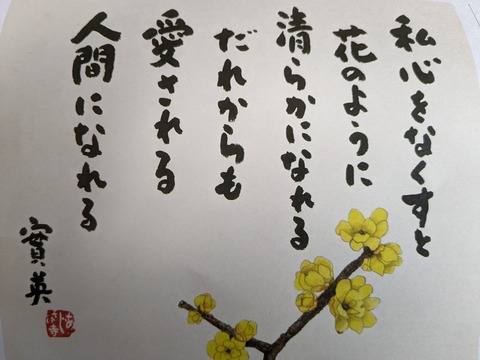 私心をなくすと
花のように
清らかになれる
だれからも
愛される
人間になれる
實英